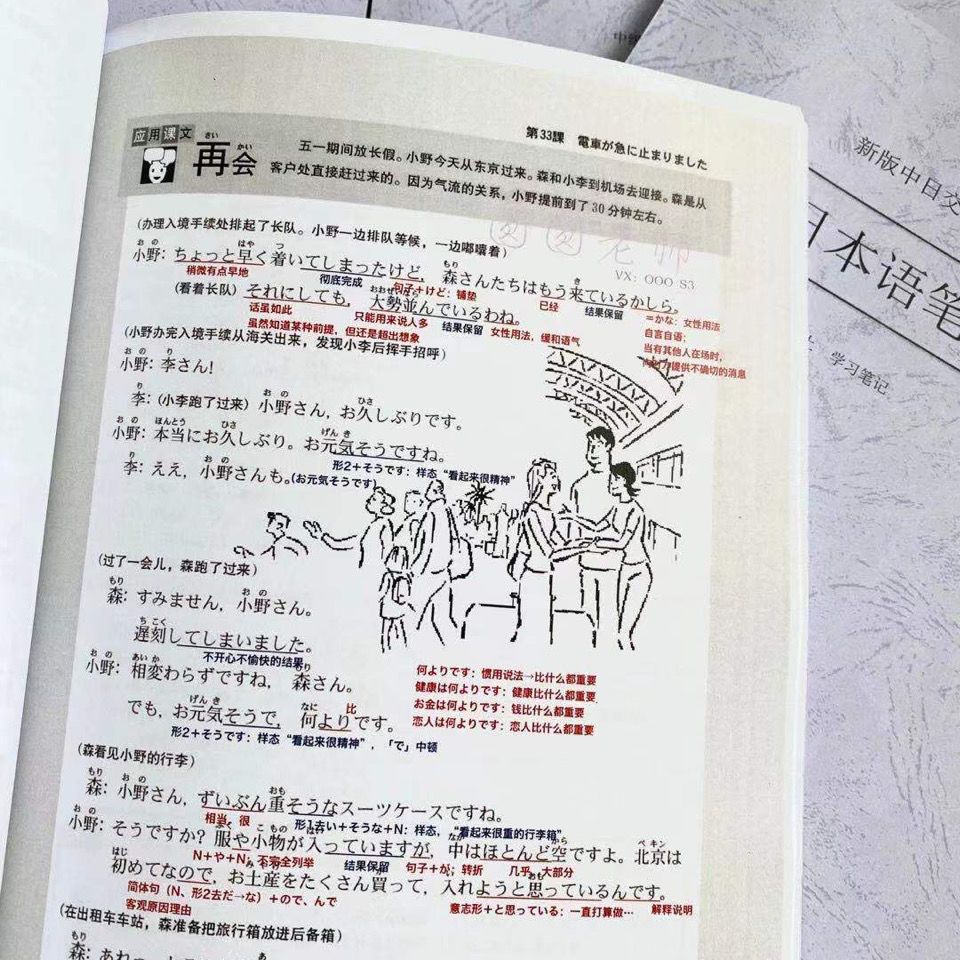 第33課 電車が急に止まりました
应用课文
再会
さい かい
五一期间放长假。小野今天从东京过来。森和小李到机场去迎接。森是从
客户处直接赶过来的。因为气流的关系，小野提前到了30分钟左右。
圆圆老师
VX: OOO S3
(办理入境手续处排起了长队。小野一边排队等候，一边嘟囔着)
おの はや つ もり き
小野: ちょっと早く着いてしまったけど，森さんたちはもう来ているかしら。
稍微有点早地 彻底完成 句子+けど：铺垫 已经 结果保留 =かな：女性用法
おおぜい なら
(看着长队) それにしても，大勢並んでいるわね。
自言自语；
话虽如此 只能用来说人多 结果保留 女性用法，缓和语气
当有其他人在场时，
虽然知道某种前提，但还是超出想象
提供不确切的消息
(小野办完入境手续从海关出来，发现小李后挥手招呼)
おの り
小野: 李さん!
り おの ひさ
李: (小李跑了过来) 小野さん，お久しぶりです。
おの ほんとう ひさ げんき
小野: 本当にお久しぶり。お元気そうですね。
形2+そうです：样态“看起来很精神”
り おの
李: ええ，小野さんも。(お元気そうです)
(过了一会儿，森跑了过来)
もり おの
森: すみません，小野さん。
ちこく
遅刻してしまいました。
不开心不愉快的结果
おの あいか もり
小野: 相変わらずですね，森さん。
げんき なに 比
でも，お元気そうで，何よりです。
形2+そうです：样态“看起来很精神”，「で」中顿
何よりです：惯用说法→比什么都重要
健康は何よりです：健康比什么都重要
お金は何よりです：钱比什么都重要
恋人は何よりです：恋人比什么都重要
(森看见小野的行李)
もり おの おも
森: 小野さん，ずいぶん重そうなスーツケースですね。
相当，很 形1去い+そうな+N：样态，“看起来很重的行李箱”
おの こもの はい なか から ペキン
小野: そうですか? 服や小物が入っていますが，中はほとんど空ですよ。北京は
N+や+N，不完全列举 结果保留 句子+が；转折 几乎，大部分
はじ おも
初めてなので，お土産をたくさん買って，入れようと思っているんです。
简体句（N、形2去だ→な）+ので、んで 意志形+と思っている：一直打算做… 解释说明
客观原因理由
(在出租车车站，森准备把旅行箱放进后备箱)
もり
森: あれ
新版中日交
日本语笔
学习笔记